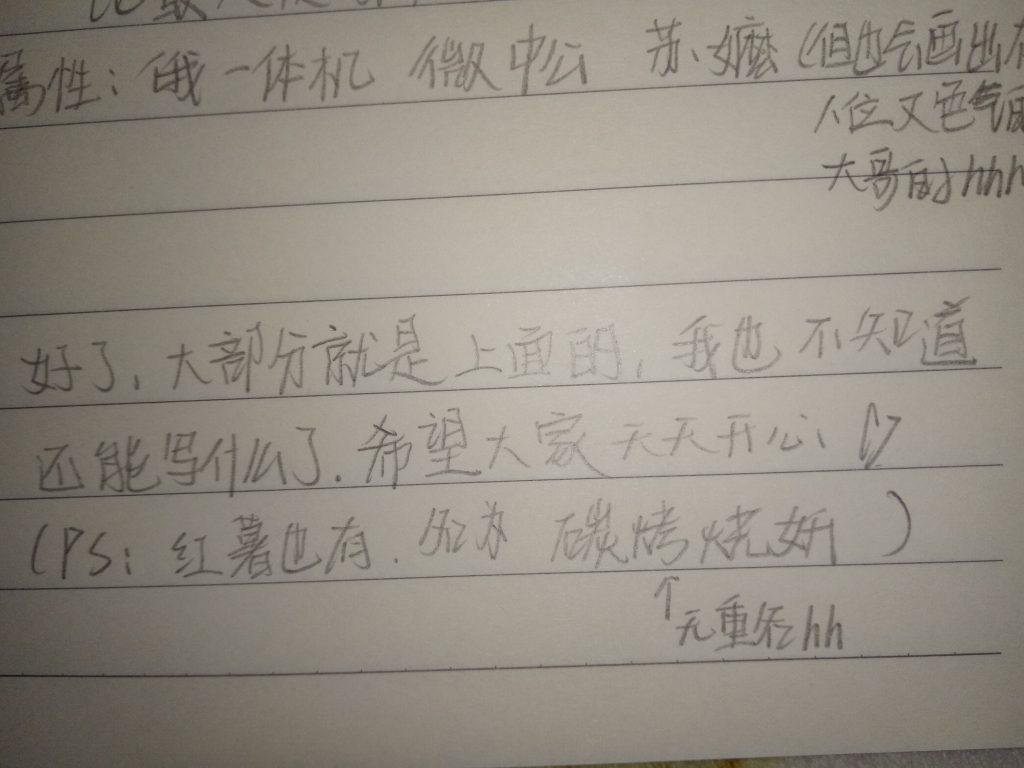 属性：俄一体机 微中公 苏嬷（但也气画出
人位又色气
大哥的hhh
好了，大部分就是上面的，我也不知道
还能写什么了．希望大家天天开心
（PS：红薯也有． 碳烤烧妍）
↑无重名hh